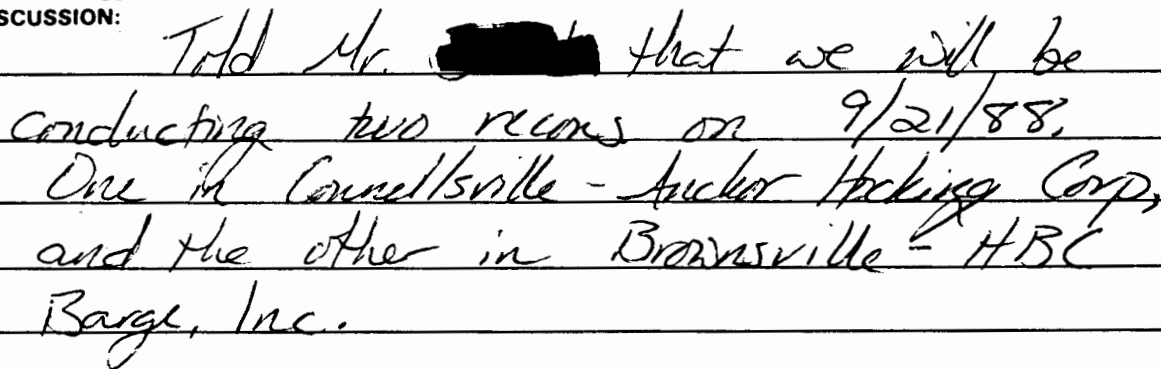 SCUSSION:
Told Mr. that we will be
conducting two recons on 9/21/88.
One in Connellsville - Anchor Hocking Corp,
and the other in Brownsville - HBC
Barge, Inc.